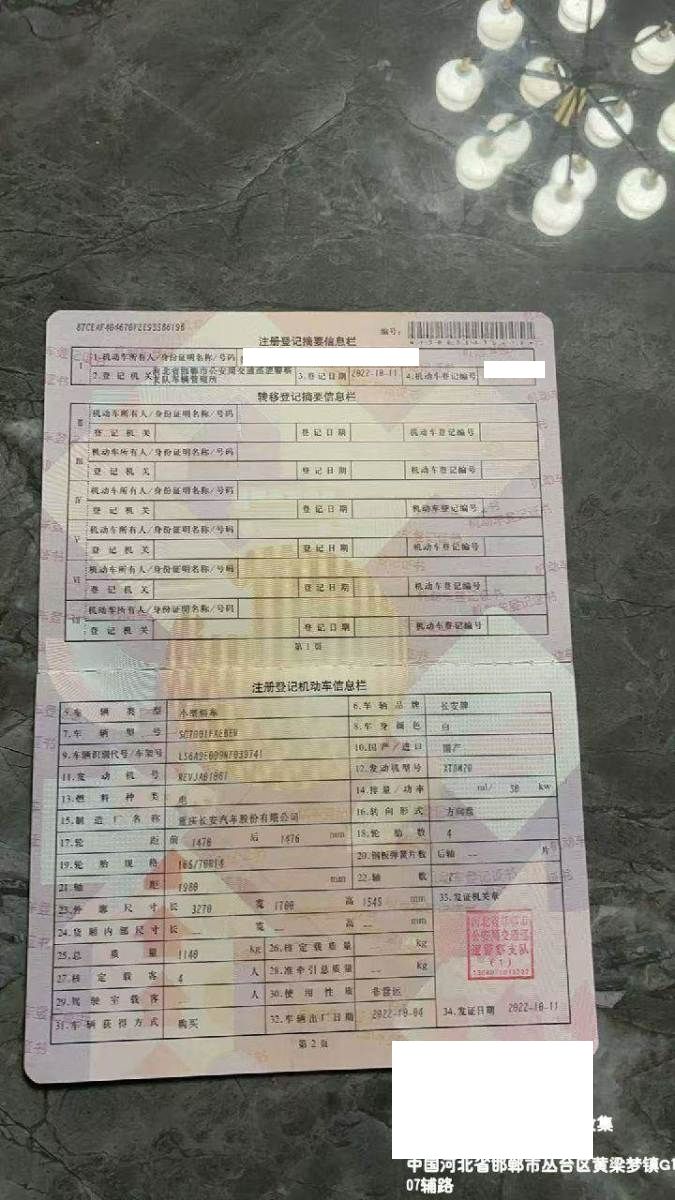 编号：
注册登记摘要信息栏
Ⅰ 1.机动车所有人/身份证明名称/号码
2.登记机关 河北省邯郸市公安局交通巡逻警察支队车辆管理所 3.登记日期 2022-10-11 4.机动车登记编号
转移登记摘要信息栏
Ⅱ 机动车所有人/身份证明名称/号码
登记机关 登记日期 机动车登记编号
Ⅲ 机动车所有人/身份证明名称/号码
登记机关 登记日期 机动车登记编号
Ⅳ 机动车所有人/身份证明名称/号码
登记机关 登记日期 机动车登记编号
Ⅴ 机动车所有人/身份证明名称/号码
登记机关 登记日期 机动车登记编号
Ⅵ 机动车所有人/身份证明名称/号码
登记机关 登记日期 机动车登记编号
Ⅶ 机动车所有人/身份证明名称/号码
登记机关 登记日期 机动车登记编号
第1页
注册登记机动车信息栏
5.车辆类型 小型轿车 6.车辆品牌 长安牌
7.车辆型号 8.车身颜色 白
9.车辆识别代号/车架号 10.国产/进口 国产
11.发动机号 12.发动机型号
13.燃料种类 电 14.排量/功率 ml/ 30 kw
15.制造厂名称 重庆长安汽车股份有限公司 16.转向形式 方向盘
17.轮距 前 1470 后 1476 mm 18.轮胎数 4
19.轮胎规格 165/70R14 20.钢板弹簧片数 后轴 -- 片
21.轴距 1980 mm 22.轴数
23.外廓尺寸 长 3270 宽 1700 高 1545 mm 33.发证机关章
24.货厢内部尺寸 长 -- 宽 -- 高 -- mm
25.总质量 1140 kg 26.核定载质量 -- kg
27.核定载客 4 人 28.准牵引总质量 -- kg
29.驾驶室载客 -- 人 30.使用性质 非营运
31.车辆获得方式 购买 32.车辆出厂日期 2022-10-04 34.发证日期 2022-10-11
第2页
集
中国河北省邯郸市丛台区黄梁梦镇G1
07辅路